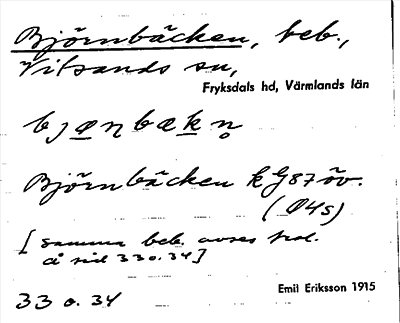 Björnbäcken, beb.,
Vitsands sn,
Fryksdals hd, Värmlands län
bjænbækn̥
Björnbäcken kGJ87öv.
(Ø4s)
[samma beb. avses trol.
å sid 33 o. 34]
33 o. 34
Emil Eriksson 1915